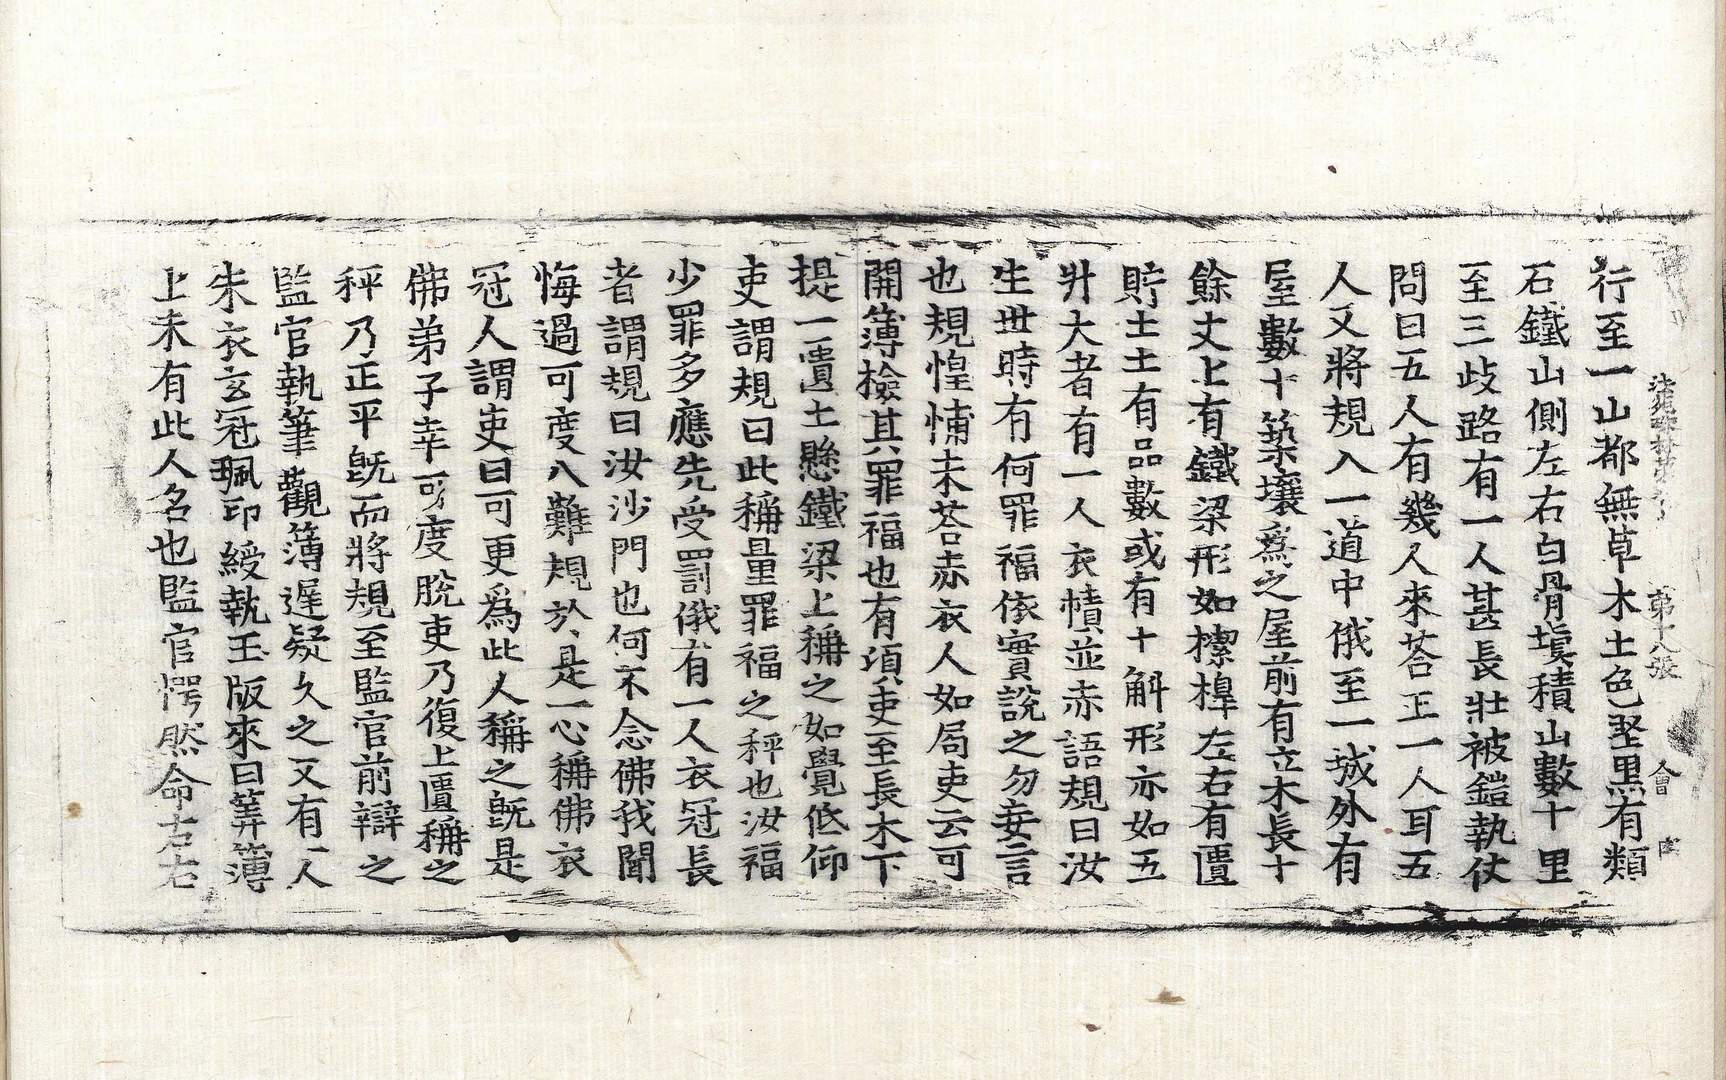 法苑珠林 第十八張 會
行至一山都無草木土色堅黑有類
石鐵山側左右白骨填積山數十里
至三歧路有一人甚長壯被鎧執仗
問曰五人有幾人來荅正一人耳五
人又將規入一道中俄至一城外有
屋數十築壤爲之屋前有立木長十
餘丈上有鐵梁形如㮮槔左右有匱
貯土土有品數或有十斛形亦如五
升大者有一人衣幘並赤語規曰汝
生世時有何罪福依實說之勿妄言
也規惶怖未荅赤衣人如局吏云可
開簿檢其罪福也有頃吏至長木下
提一匱土懸鐵梁上稱之如覺低仰
吏謂規曰此稱量罪福之秤也汝福
少罪多應先受罰俄有一人衣冠長
者謂規曰汝沙門也何不念佛我聞
悔過可度八難規於是一心稱佛衣
冠人謂吏曰可更爲此人稱之旣是
佛弟子幸可度脫吏乃復上匱稱之
秤乃正平旣而將規至監官前辯之
監官執筆觀簿遲疑久之又有一人
朱衣玄冠珮印綬執玉版來曰筭簿
上未有此人名也監官愕然命左右